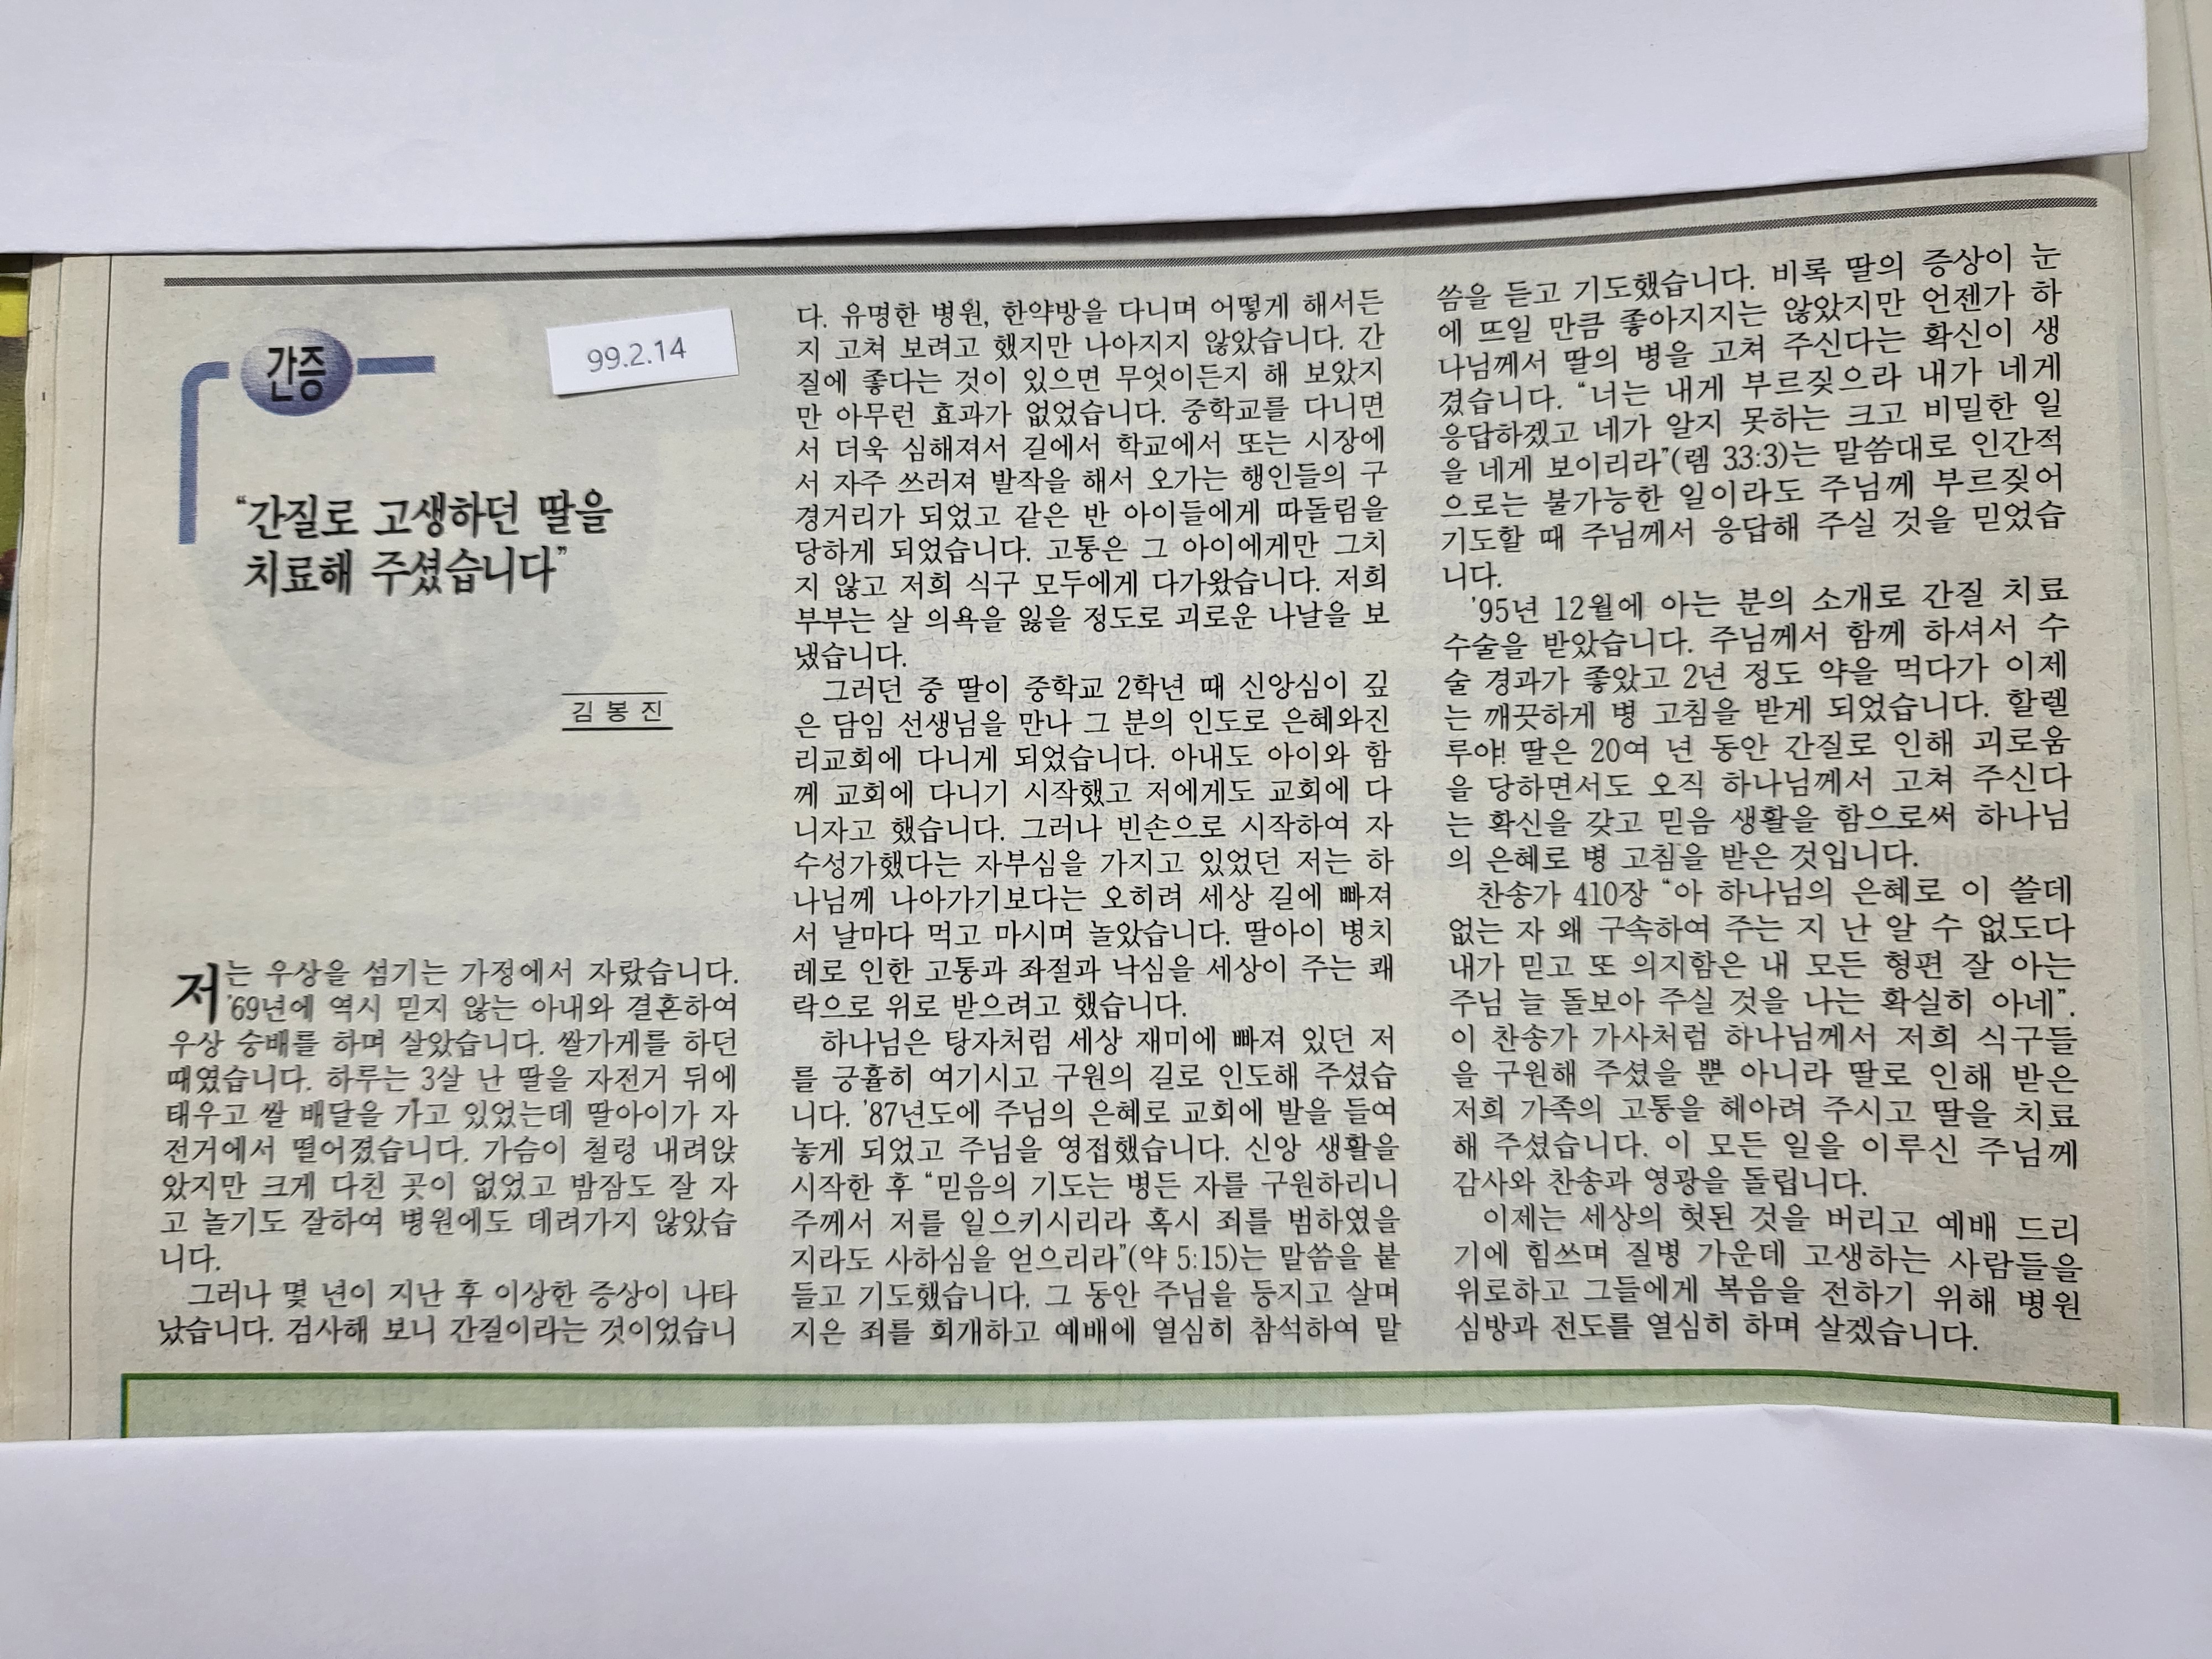 간증
99.2.14
“간질로 고생하던 딸을
치료해 주셨습니다”
김봉진
저는 우상을 섬기는 가정에서 자랐습니다.
’69년에 역시 믿지 않는 아내와 결혼하여
우상 숭배를 하며 살았습니다. 쌀가게를 하던
때였습니다. 하루는 3살 난 딸을 자전거 뒤에
태우고 쌀 배달을 가고 있었는데 딸아이가 자
전거에서 떨어졌습니다. 가슴이 철렁 내려앉
았지만 크게 다친 곳이 없었고 밤잠도 잘 자
고 놀기도 잘하여 병원에도 데려가지 않았습
니다.
그러나 몇 년이 지난 후 이상한 증상이 나타
났습니다. 검사해 보니 간질이라는 것이었습니
다. 유명한 병원, 한약방을 다니며 어떻게 해서든
지 고쳐 보려고 했지만 나아지지 않았습니다. 간
질에 좋다는 것이 있으면 무엇이든지 해 보았지
만 아무런 효과가 없었습니다. 중학교를 다니면
서 더욱 심해져서 길에서 학교에서 또는 시장에
서 자주 쓰러져 발작을 해서 오가는 행인들의 구
경거리가 되었고 같은 반 아이들에게 따돌림을
당하게 되었습니다. 고통은 그 아이에게만 그치
지 않고 저희 식구 모두에게 다가왔습니다. 저희
부부는 살 의욕을 잃을 정도로 괴로운 나날을 보
냈습니다.
그러던 중 딸이 중학교 2학년 때 신앙심이 깊
은 담임 선생님을 만나 그 분의 인도로 은혜와진
리교회에 다니게 되었습니다. 아내도 아이와 함
께 교회에 다니기 시작했고 저에게도 교회에 다
니자고 했습니다. 그러나 빈손으로 시작하여 자
수성가했다는 자부심을 가지고 있었던 저는 하
나님께 나아가기보다는 오히려 세상 길에 빠져
서 날마다 먹고 마시며 놀았습니다. 딸아이 병치
레로 인한 고통과 좌절과 낙심을 세상이 주는 쾌
락으로 위로 받으려고 했습니다.
하나님은 탕자처럼 세상 재미에 빠져 있던 저
를 긍휼히 여기시고 구원의 길로 인도해 주셨습
니다. ’87년도에 주님의 은혜로 교회에 발을 들여
놓게 되었고 주님을 영접했습니다. 신앙 생활을
시작한 후 “믿음의 기도는 병든 자를 구원하리니
주께서 저를 일으키시리라 혹시 죄를 범하였을
지라도 사하심을 얻으리라”(약 5:15)는 말씀을 붙
들고 기도했습니다. 그 동안 주님을 등지고 살며
지은 죄를 회개하고 예배에 열심히 참석하여 말
씀을 듣고 기도했습니다. 비록 딸의 증상이 눈
에 뜨일 만큼 좋아지지는 않았지만 언젠가 하
나님께서 딸의 병을 고쳐 주신다는 확신이 생
겼습니다. “너는 내게 부르짖으라 내가 네게
응답하겠고 네가 알지 못하는 크고 비밀한 일
을 네게 보이리라”(렘 33:3)는 말씀대로 인간적
으로는 불가능한 일이라도 주님께 부르짖어
기도할 때 주님께서 응답해 주실 것을 믿었습
니다.
’95년 12월에 아는 분의 소개로 간질 치료
수술을 받았습니다. 주님께서 함께 하셔서 수
술 경과가 좋았고 2년 정도 약을 먹다가 이제
는 깨끗하게 병 고침을 받게 되었습니다. 할렐
루야! 딸은 20여 년 동안 간질로 인해 괴로움
을 당하면서도 오직 하나님께서 고쳐 주신다
는 확신을 갖고 믿음 생활을 함으로써 하나님
의 은혜로 병 고침을 받은 것입니다.
찬송가 410장 “아 하나님의 은혜로 이 쓸데
없는 자 왜 구속하여 주는 지 난 알 수 없도다
내가 믿고 또 의지함은 내 모든 형편 잘 아는
주님 늘 돌보아 주실 것을 나는 확실히 아네”.
이 찬송가 가사처럼 하나님께서 저희 식구들
을 구원해 주셨을 뿐 아니라 딸로 인해 받은
저희 가족의 고통을 헤아려 주시고 딸을 치료
해 주셨습니다. 이 모든 일을 이루신 주님께
감사와 찬송과 영광을 돌립니다.
이제는 세상의 헛된 것을 버리고 예배 드리
기에 힘쓰며 질병 가운데 고생하는 사람들을
위로하고 그들에게 복음을 전하기 위해 병원
심방과 전도를 열심히 하며 살겠습니다.